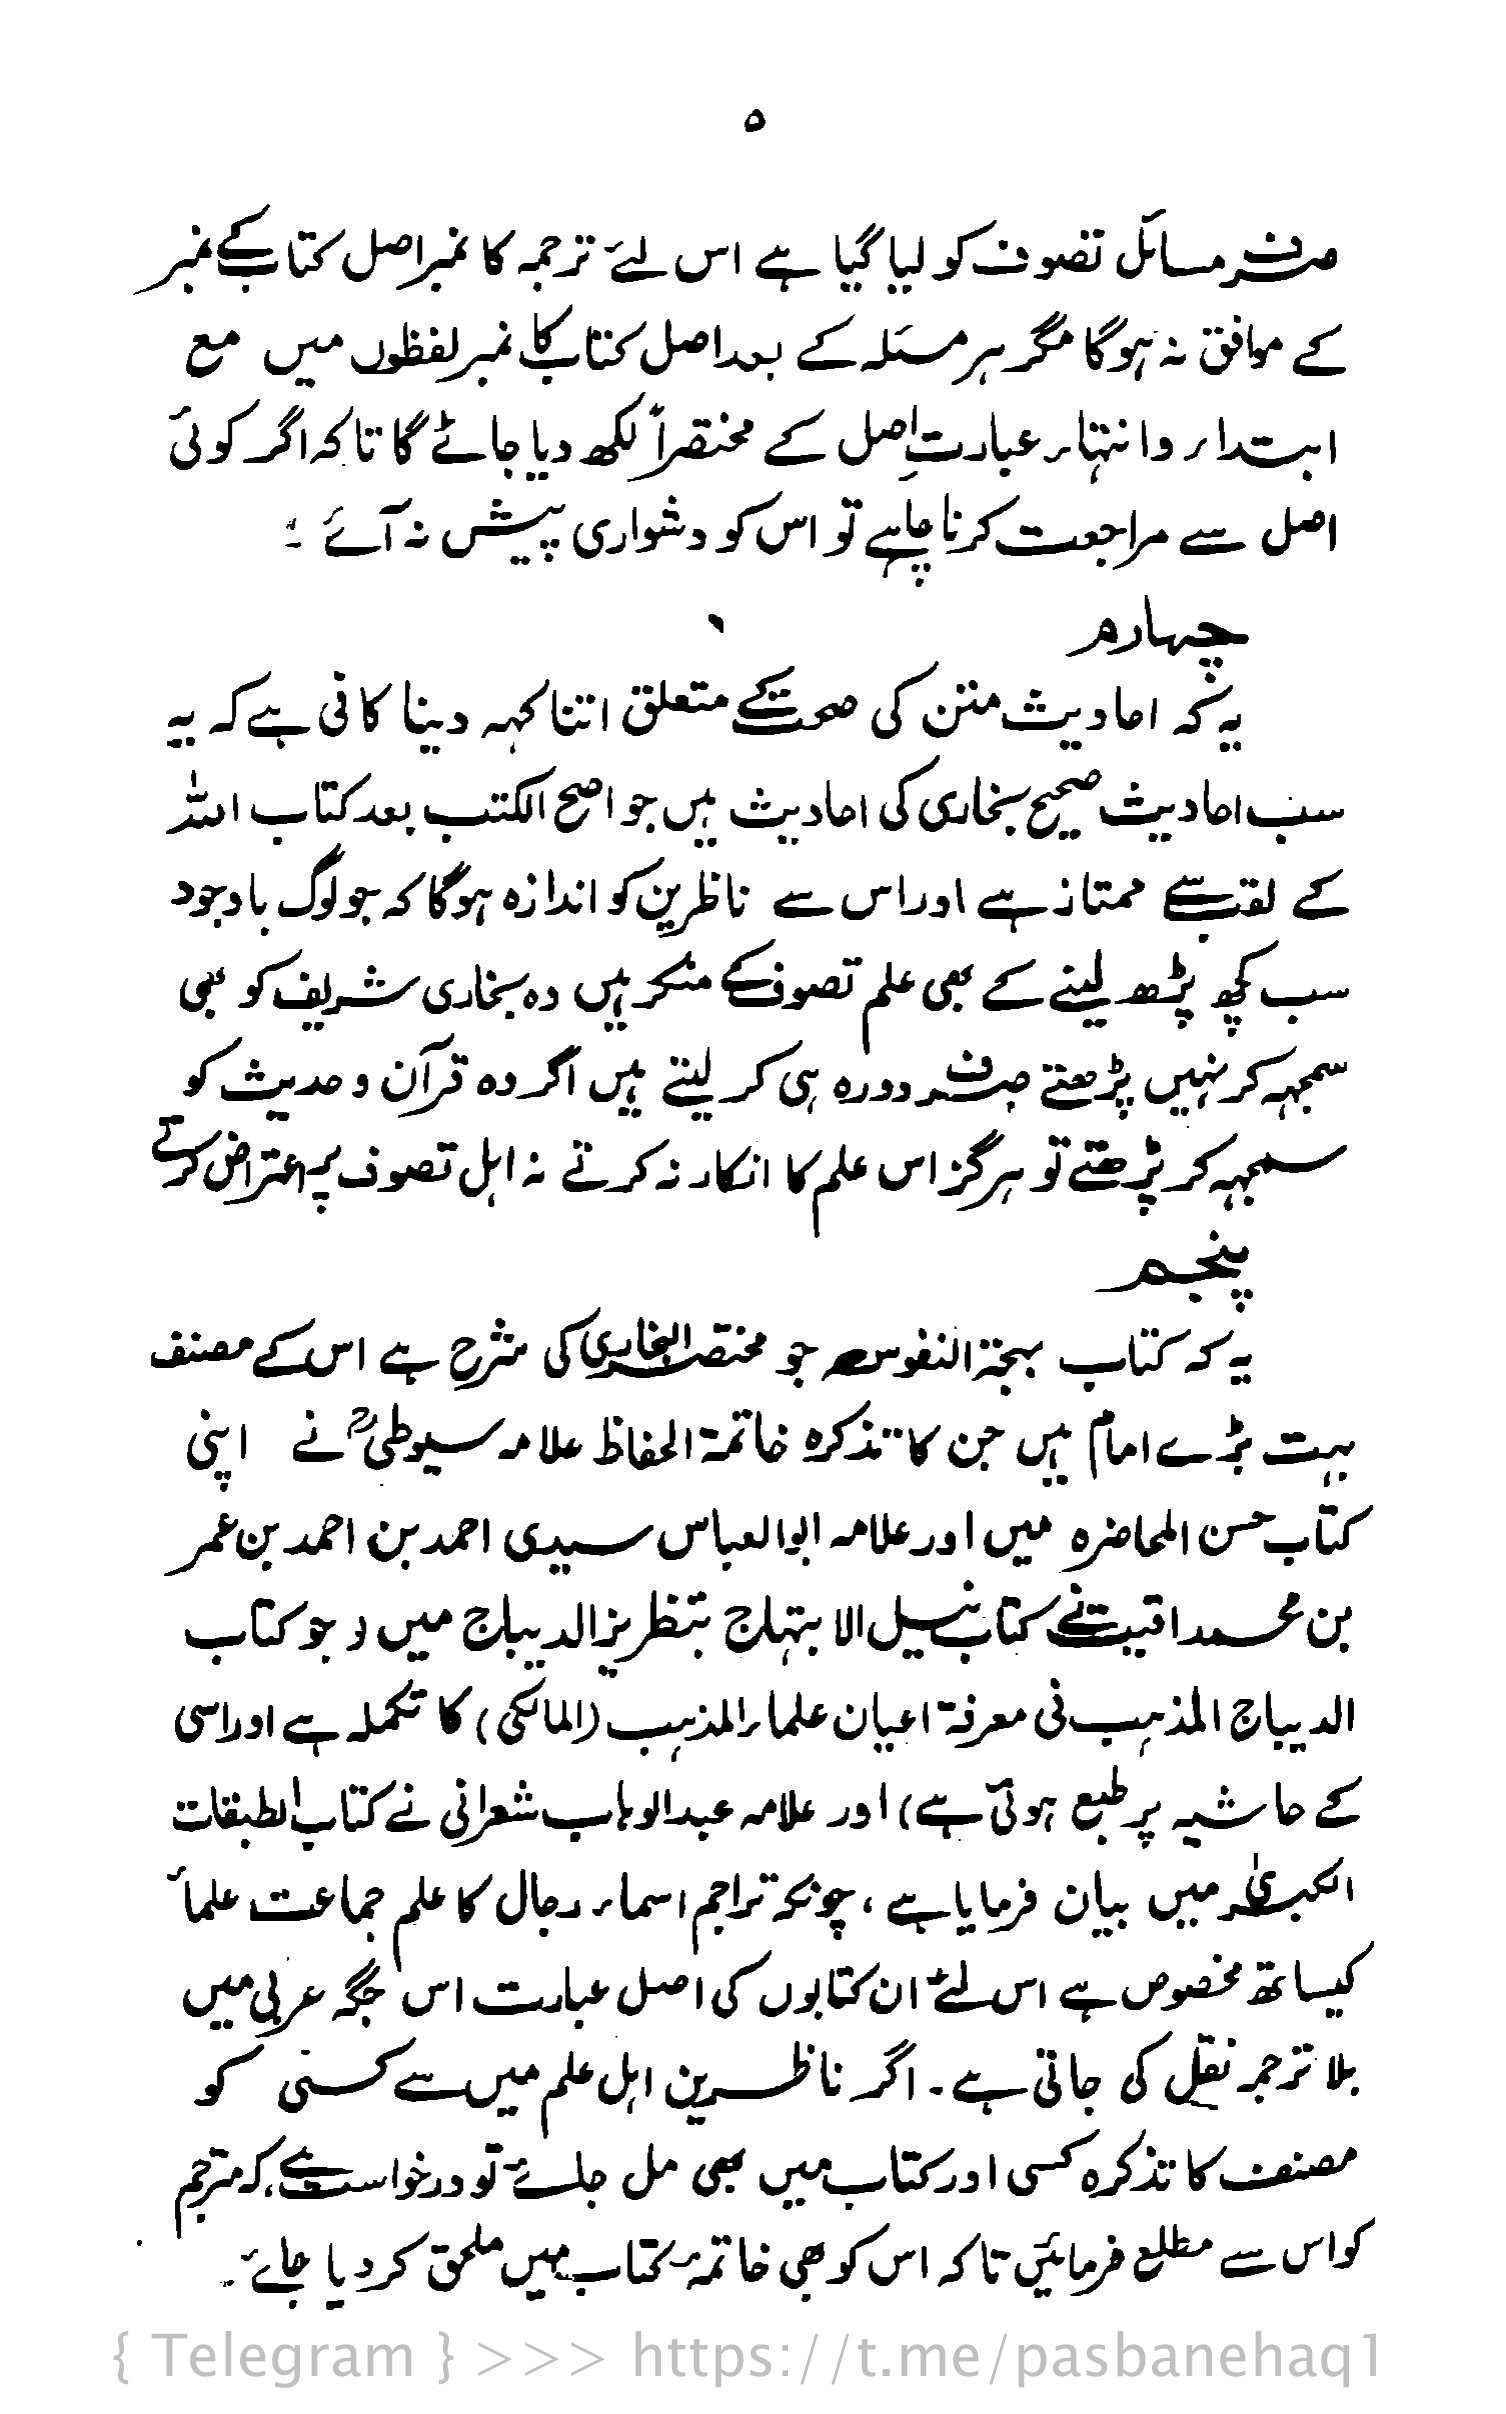 ۵
صرف مسائل تصوف کو لیا گیا ہے اس لئے ترجمہ کا نمبر اصل کتاب کے نمبر
کے موافق نہ ہوگا مگر ہر مسئلہ کے بعد اصل کتاب کا نمبر لفظوں میں مع
ابتداء و انتہاء عبارتِ اصل کے مختصراً لکھ دیا جائے گا تاکہ اگر کوئی
اصل سے مراجعت کرنا چاہے تو اس کو دشواری پیش نہ آئے ۔
چہارم
یہ کہ احادیث متن کی صحت کے متعلق اتنا کہہ دینا کافی ہے کہ یہ
سب احادیث صحیح بخاری کی احادیث ہیں جو اصح الکتب بعد کتاب اللہ
کے لقب سے ممتاز ہے اور اس سے ناظرین کو اندازہ ہوگا کہ جو لوگ باوجود
سب کچھ پڑھ لینے کے بھی علم تصوف کے منکر ہیں وہ بخاری شریف کو بھی
سمجہہ کر نہیں پڑھتے صرف دورہ ہی کر لیتے ہیں اگر وہ قرآن و حدیث کو
سمجہہ کر پڑھتے تو ہرگز اس علم کا انکار نہ کرتے نہ اہل تصوف پر اعتراض کرتے
پنجم
یہ کہ کتاب بہجۃ النفوس جو مختصر البخاری کی شرح ہے اس کے مصنف
بہت بڑے امام ہیں جن کا تذکرہ خاتمۃ الحفاظ علامہ سیوطیؒ نے اپنی
کتاب حسن المحاضرہ میں اور علامہ ابو العباس سیدی احمد بن احمد بن عمر
بن محمد اقیت نے کتاب نیل الابتہاج بتطریز الدیباج میں (جو کتاب
الدیباج المذہب فی معرفۃ اعیان علماء المذہب (المالکی) کا تکملہ ہے اور اسی
کے حاشیہ پر طبع ہوئی ہے) اور علامہ عبدالوہاب شعرانی نے کتاب الطبقات
الکبریٰ میں بیان فرمایا ہے ، چونکہ تراجم اسماء رجال کا علم جماعت علمأ
کیساتھ مخصوص ہے اس لئے ان کتابوں کی اصل عبارت اس جگہ عربی میں
بلا ترجمہ نقل کی جاتی ہے ۔ اگر ناظرین اہل علم میں سے کسی کو
مصنف کا تذکرہ کسی اور کتاب میں بھی مل جائے تو درخواست ہے کہ مترجم
کو اس سے مطلع فرمائیں تاکہ اس کو بھی خاتمۂ کتاب میں ملحق کر دیا جائے ۔
{ Telegram } >>> https://t.me/pasbanehaq1